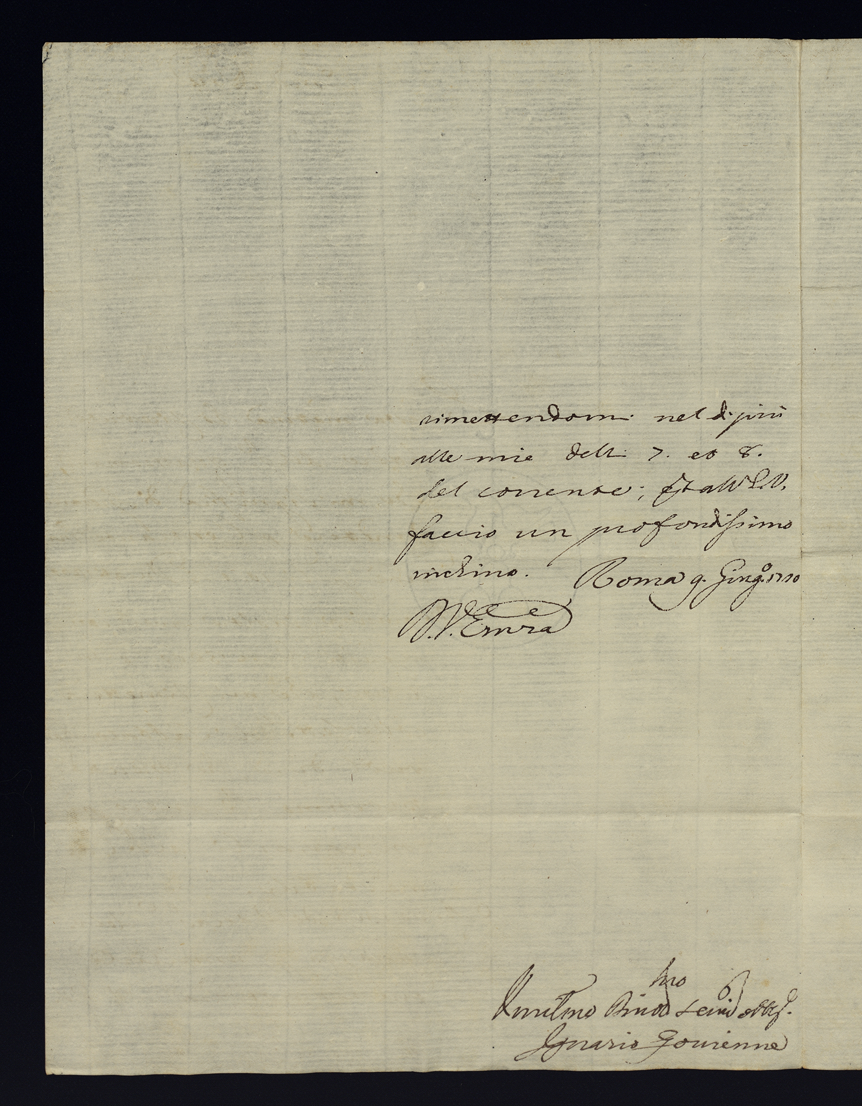 rimettendomi nel di più
alle mie delli 7. et 8.
del corrente; Et all' E.V.
faccio un profondissimo
inchino. Roma 9. Giug.o 1710
D.V. Emza
hmo
Umilmo servid obblig.
Ignazio